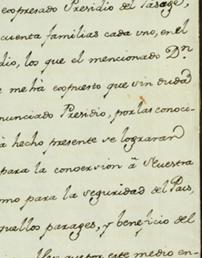 expresado Presidio del Pasage,
cuenta familias cada uno, en el
dio, los que el mencionado Dn.
e me há expuesto que sin duda
nunciado Presidio, por las conoci-
à hecho presente se lograran
para la conversion â Nuestra
mo para la seguridad del Pais,
quellos parages, y beneficio del
por este medio en-